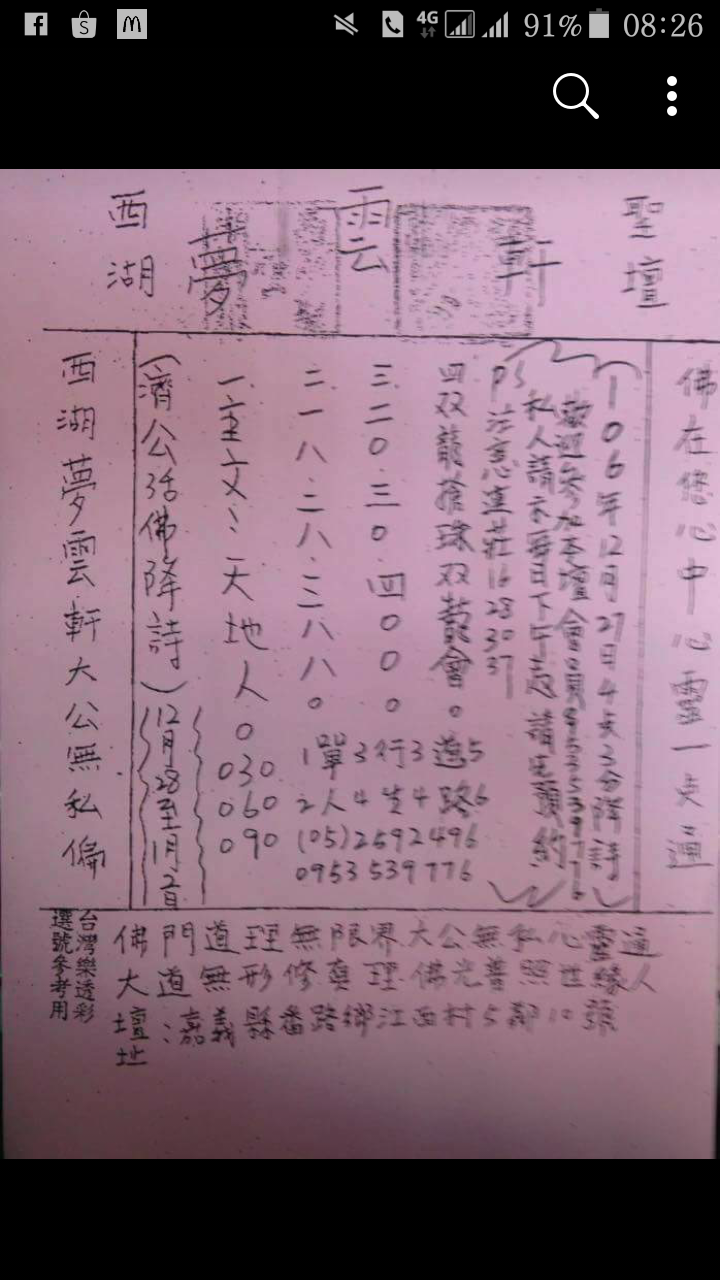 4G 91% 08:26
西湖 夢雲軒 聖壇
佛在您心中心靈一点通
(106年12月27日4点3分降詩)
歡迎參加本壇會員0953539776
私人請示每日下午起請先預約
PS注意連莊16 28 30 37
四双龍搶珠双龍會。
三.二0.三0.四000
二一八.二八.三八八0
一.主文:天地人0
030
060
090
1單3行3逃5
2人4生4路6
(05)2592496
0953539776
(濟公活佛降詩)
12月28至1月2日
西湖夢雲軒大公無私偏
台灣樂透彩
選號參考用
佛門道理無限界大公無私心靈通
大道無形修真理佛光善照世緣人
壇址:嘉義縣番路鄉江西村5鄰10號